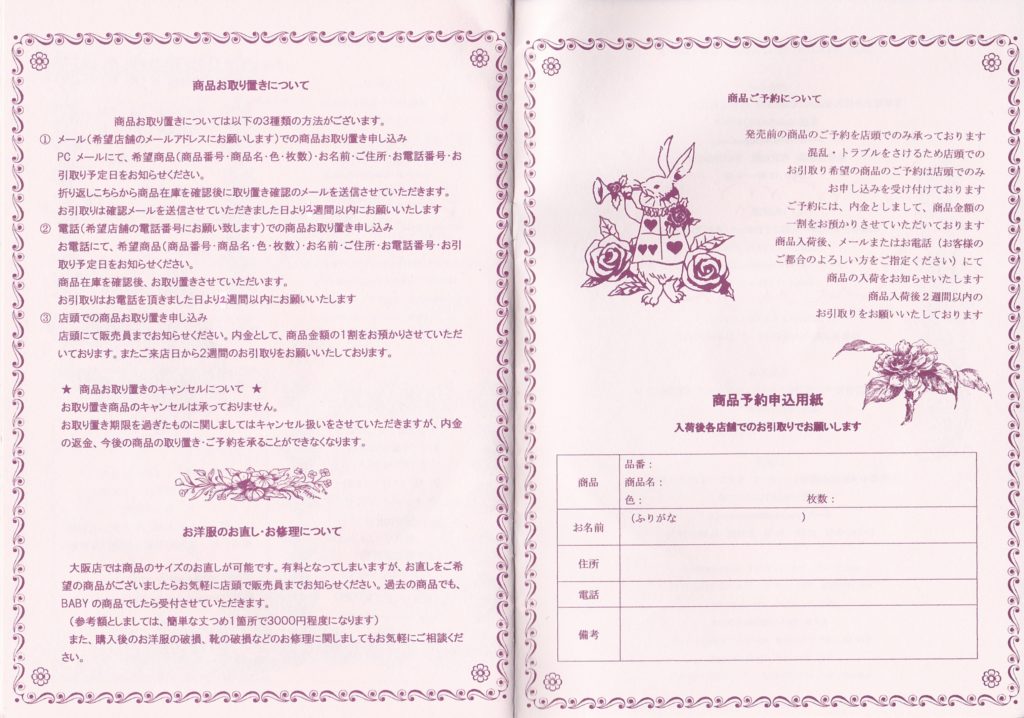 商品お取り置きについて
商品お取り置きについては以下の3種類の方法がございます。
① メール(希望店舗のメールアドレスにお願いします)での商品お取り置き申し込み
PC メールにて、希望商品(商品番号・商品名・色・枚数)・お名前・ご住所・お電話番号・お
引取り予定日をお知らせください。
折り返しこちらから商品在庫を確認後に取り置き確認のメールを送信させていただきます。
お引取りは確認メールを送信させていただきました日より2週間以内にお願いいたします
② 電話(希望店舗の電話番号にお願い致します)での商品お取り置き申し込み
お電話にて、希望商品(商品番号・商品名・色・枚数)・お名前・ご住所・お電話番号・お引
取り予定日をお知らせください。
商品在庫を確認後、お取置きさせていただいます。
お引取りはお電話を頂きました日より2週間以内にお願いいたします
③ 店頭での商品お取り置き申し込み
店頭にて販売員までお知らせください。内金として、商品金額の1割をお預かりさせていただ
いております。またご来店日から2週間のお引取りをお願いいたしております。
★ 商品お取り置きのキャンセルについて ★
お取り置き商品のキャンセルは承っておりません。
お取り置き期限を過ぎたものに関しましてはキャンセル扱いをさせていただきますが、内金
の返金、今後の商品の取り置き・ご予約を承ることができなくなります。
お洋服のお直し・お修理について
大阪店では商品のサイズのお直しが可能です。有料となってしまいますが、お直しをご希
望の商品がございましたらお気軽に店頭で販売員までお知らせください。過去の商品でも、
BABY の商品でしたら受付させていただきます。
(参考額としましては、簡単な丈つめ1箇所で3000円程度になります)
また、購入後のお洋服の破損、靴の破損などのお修理に関しましてもお気軽にご相談くだ
さい。
商品ご予約について
発売前の商品のご予約を店頭でのみ承っております
混乱・トラブルをさけるため店頭での
お引取り希望の商品のご予約は店頭でのみ
お申し込みを受け付けております
ご予約には、内金としまして、商品金額の
一割をお預かりさせていただいております
商品入荷後、メールまたはお電話（お客様の
ご都合のよろしい方をご指定ください）にて
商品の入荷をお知らせいたします
商品入荷後２週間以内の
お引取りをお願いいたしております
商品予約申込用紙
入荷後各店舗でのお引取りでお願いします
商品
品番：
商品名：
色： 枚数：
お名前
（ふりがな ）
住所
電話
備考